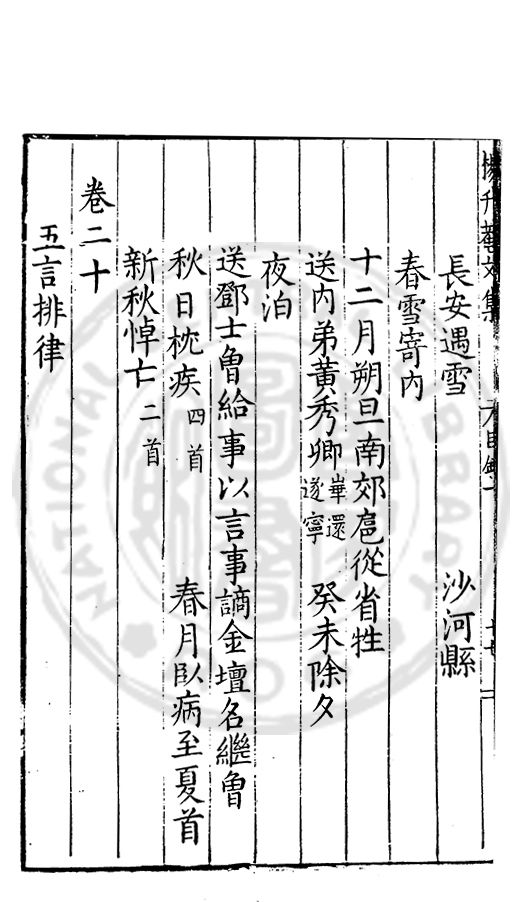 楊升菴文集
長安遇雪 沙河縣
春雪寄內
十二月朔旦南郊扈從省牲
送內弟黃秀卿 峯還遂寧 癸未除夕
夜泊
送鄧士魯給事以言事謫金壇名繼曾
秋日枕疾 四首 春月臥病至夏首
新秋悼亡 二首
卷二十
五言排律